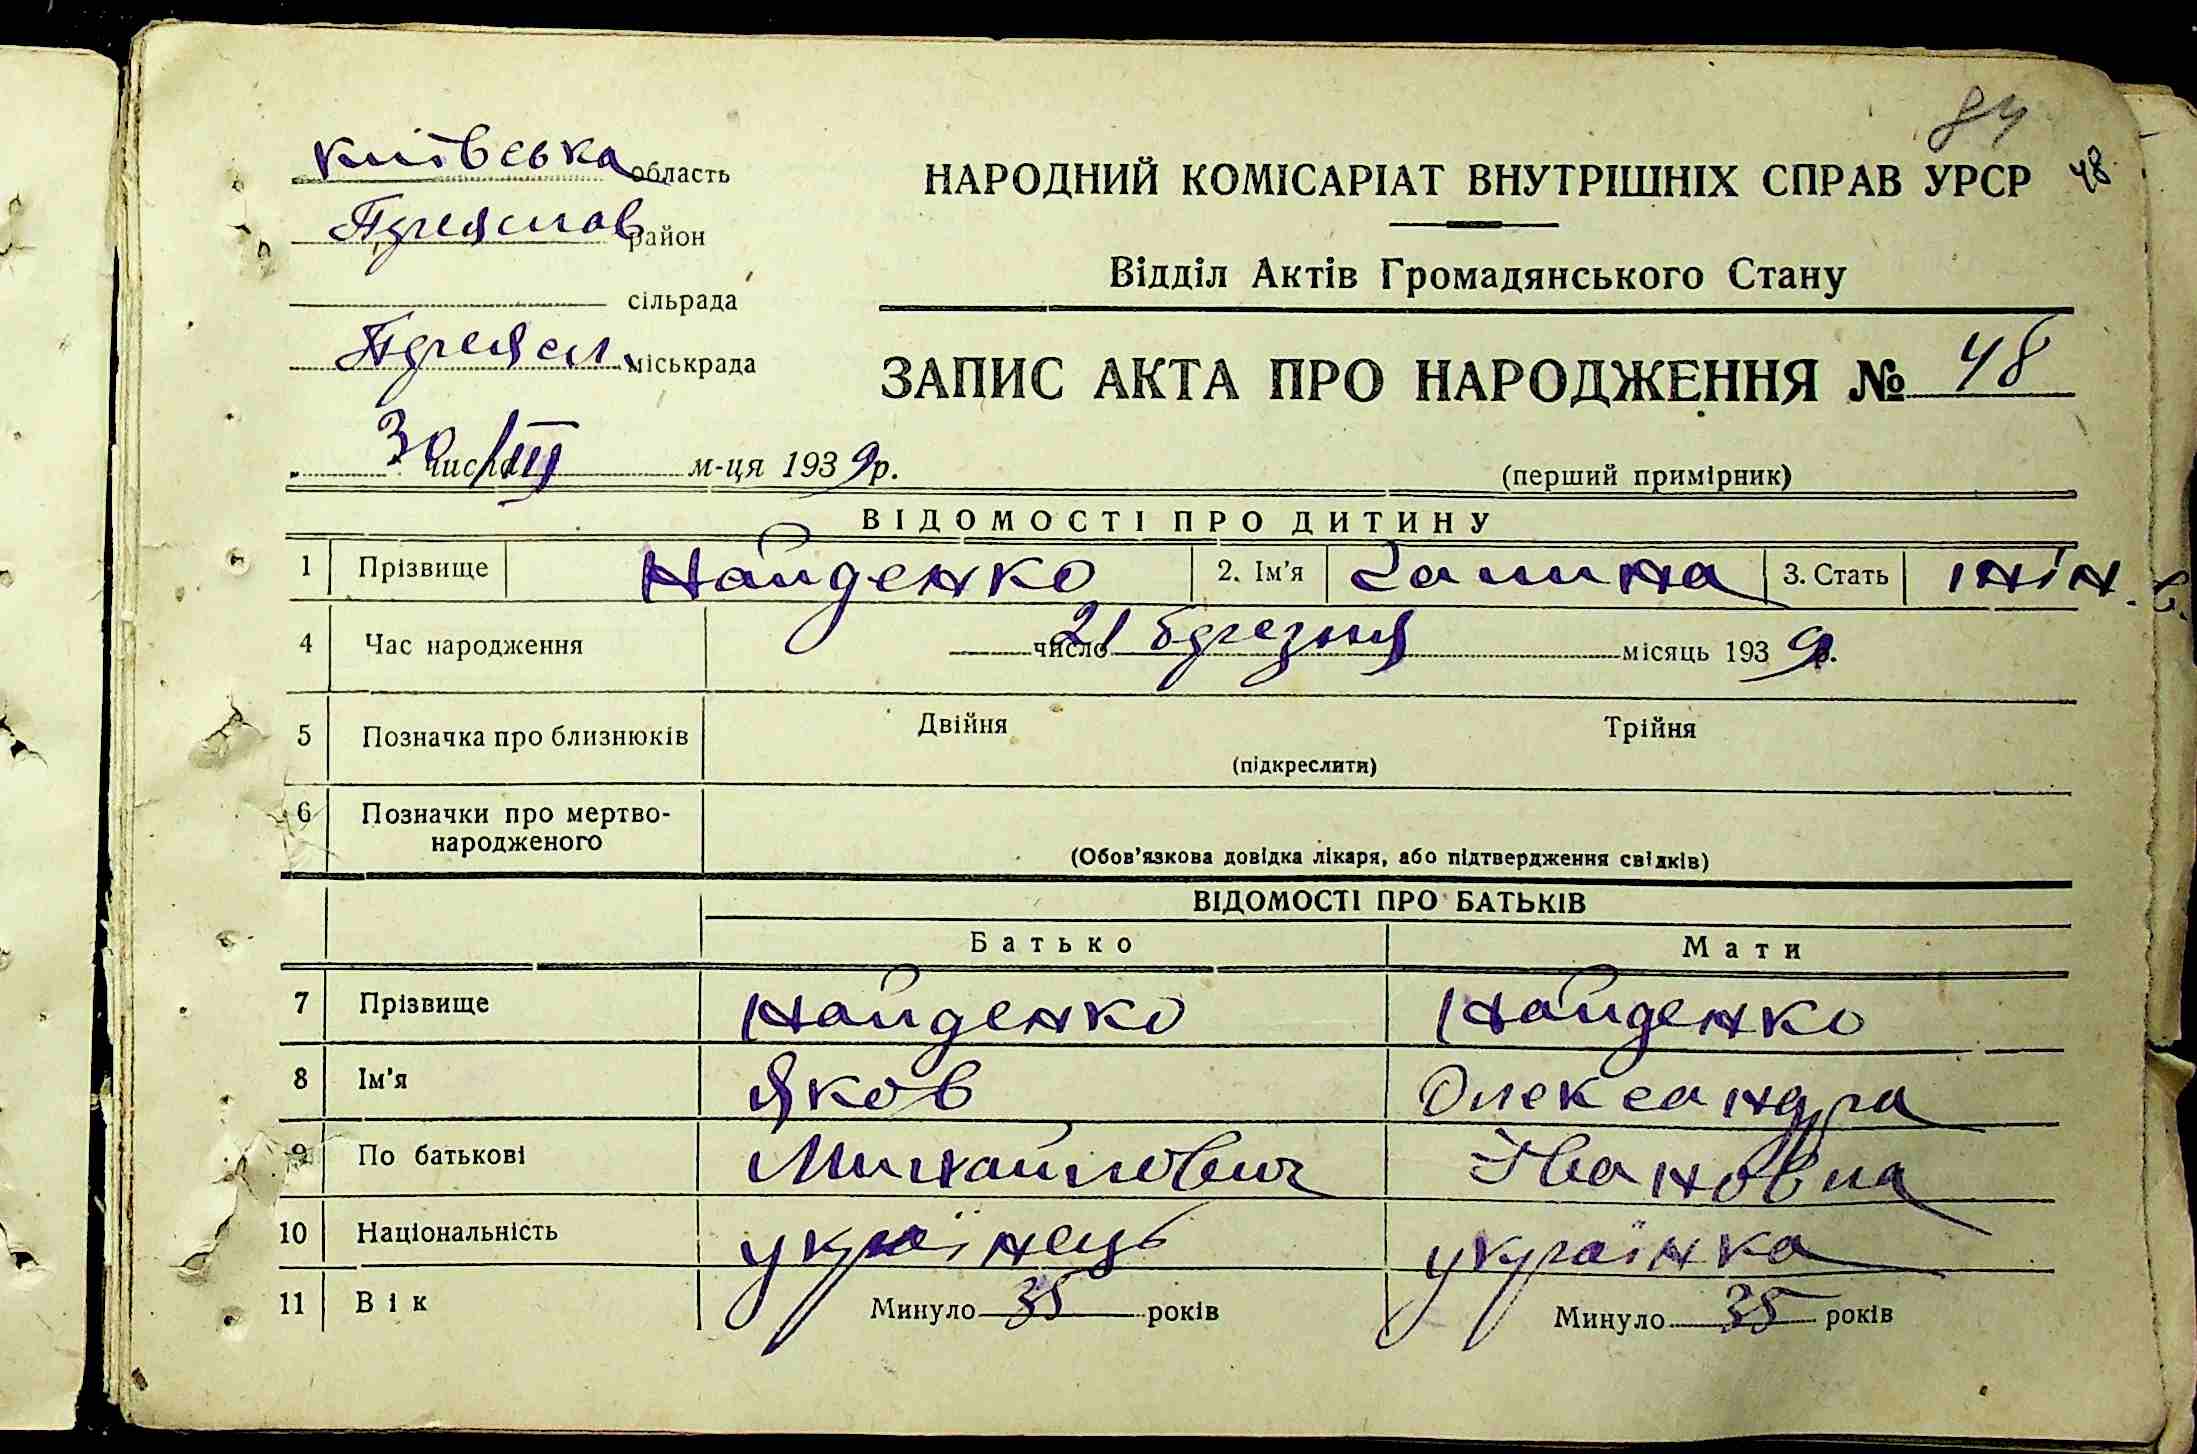 84
Київська область
НАРОДНИЙ КОМІСАРІАТ ВНУТРІШНІХ СПРАВ УРСР 48
Переяслав район
Відділ Актів Громадянського Стану
сільрада
Переясл. міськрада
ЗАПИС АКТА ПРО НАРОДЖЕННЯ № 48
30 числа /III м-ця 1939 р.
(перший примірник)
ВІДОМОСТІ ПРО ДИТИНУ
1 Прізвище Найденко 2. Ім'я Галина 3. Стать жін.
4 Час народження 21 число березня місяць 1939 р.
5 Позначка про близнюків Двійня Трійня
(підкреслити)
6 Позначки про мертво-
народженого
(Обов'язкова довідка лікаря, або підтвердження свідків)
ВІДОМОСТІ ПРО БАТЬКІВ
Батько Мати
7 Прізвище Найденко Найденко
8 Ім'я Яков Олександра
9 По батькові Михайлович Івановна
10 Національність українець українка
11 Вік Минуло 35 років Минуло 35 років